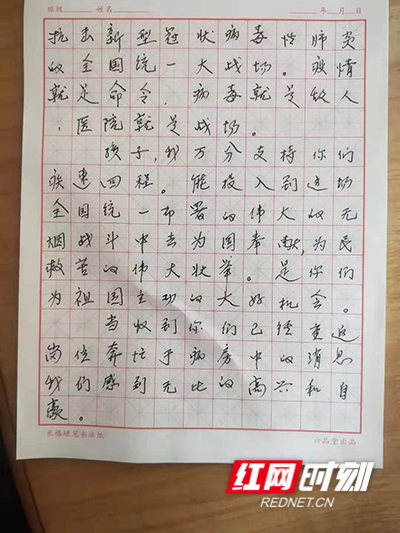 班级 姓名 年 月 日
抗击新型冠状病毒性肺炎
的全国统一大战场。疫情
就是命令，病毒就是敌人
，医院就是战场。
孩子，我万分支持你们
疾速回程。能投入到这场
全国统一布署的伟大的无
烟战斗中去为国奉献，为民
救苦的伟大壮举。是你们
为祖国立功的大好机会。
当收到你们已经重返
岗位奔忙于病房中的消息
我们感到无比的高兴和自
豪。
米格硬笔书法纸 六品堂出品
红网时刻
REDNET.CN